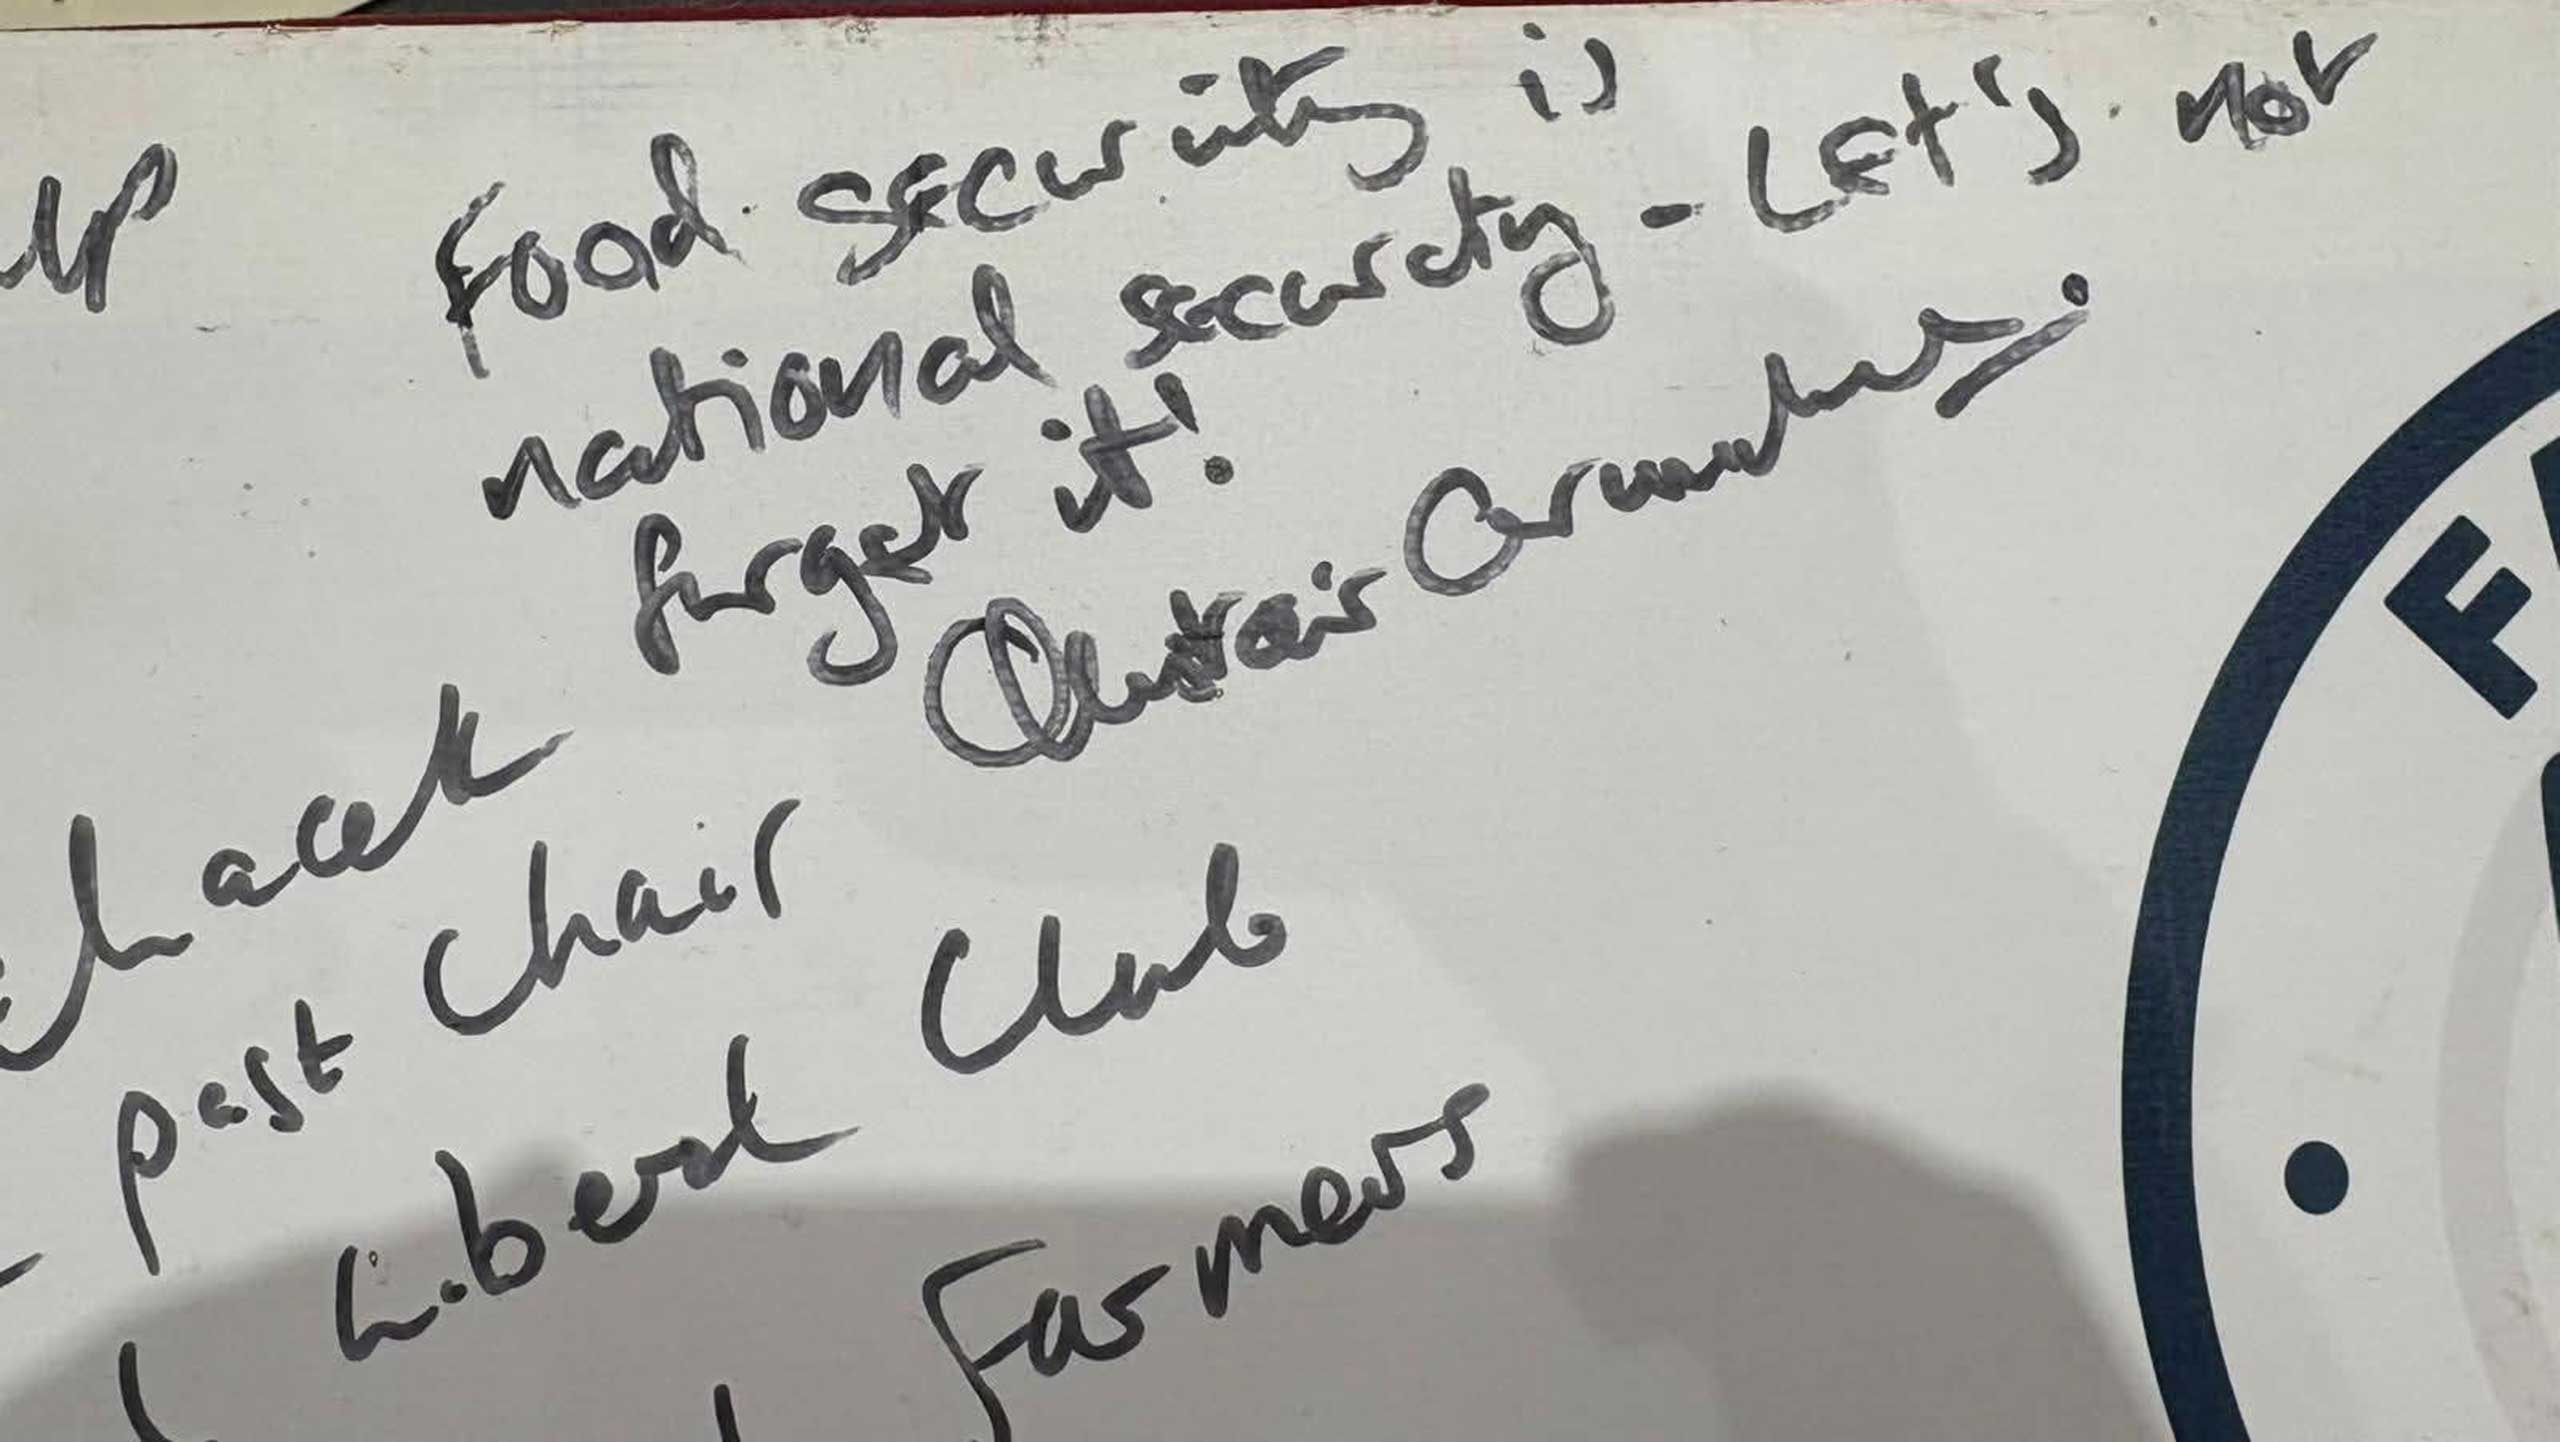 Food security is
national security - Let's not
forget it!
Alistair Carmichael.
past chair
Liberal Club
Farmers
F